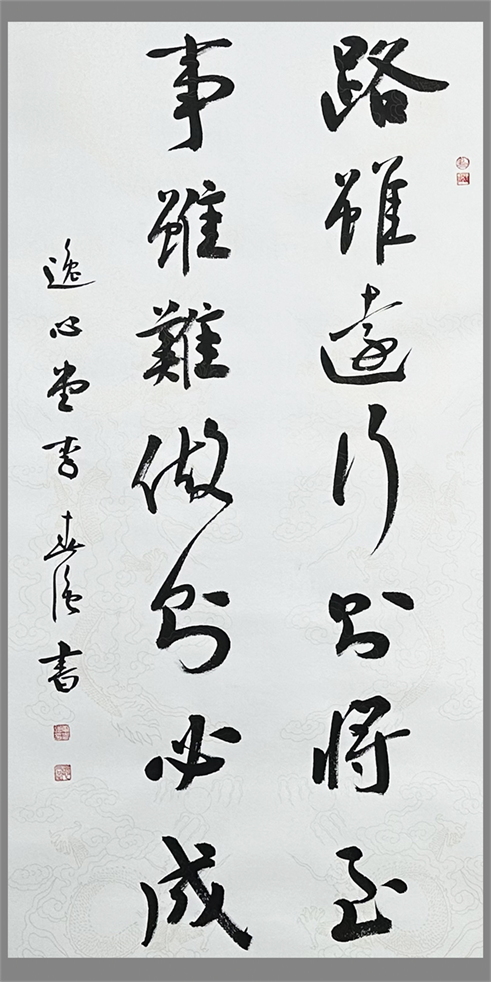 路雖遠行則將至
事雖難做則必成
逸心堂李春隆書